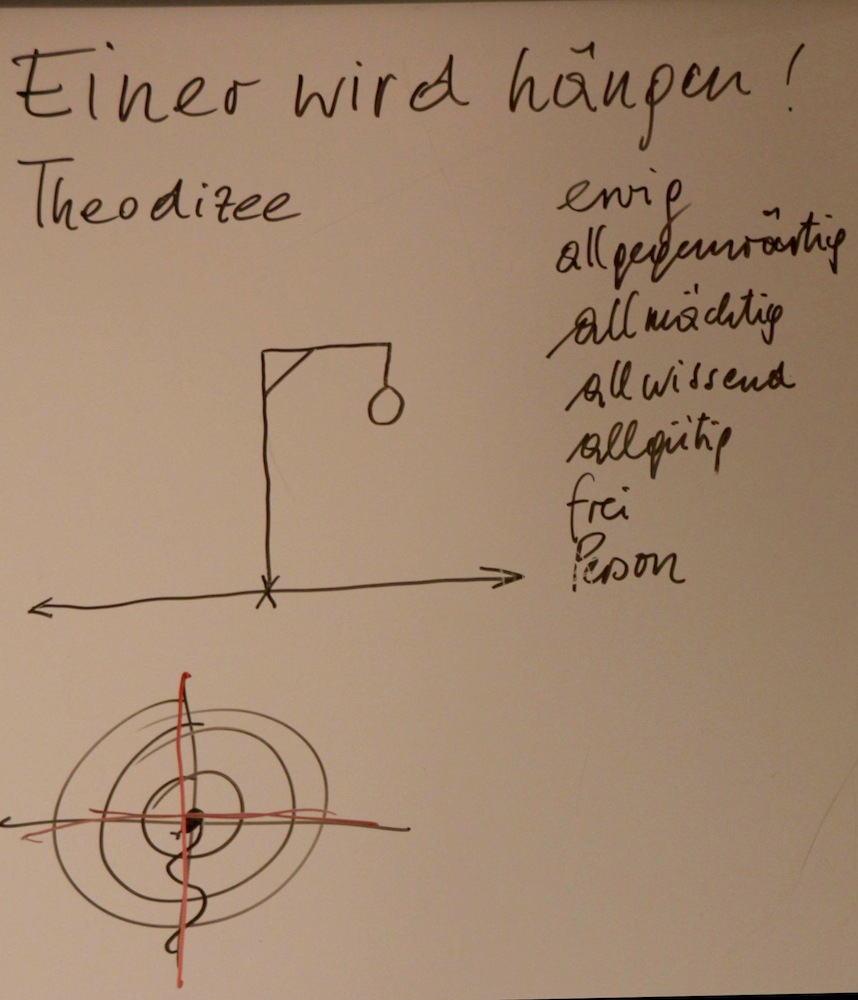 Einer wird hängen!
Theodizee
ewig
allgegenwärtig
allmächtig
allwissend
allgütig
frei
Person